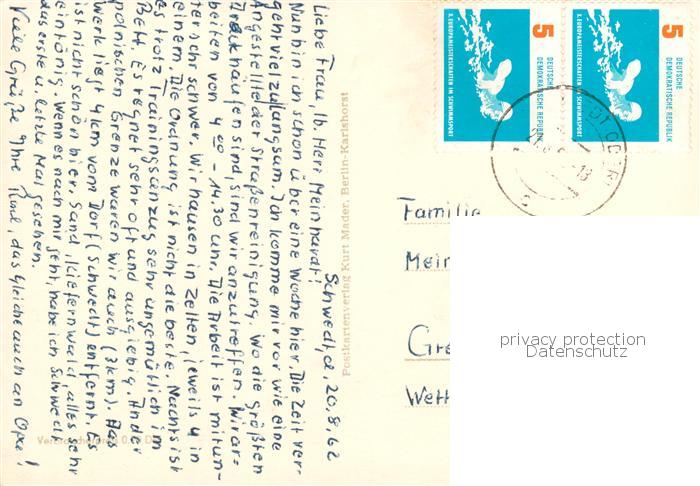 Schwedt, d. 20.8.62
Liebe Frau, lb. Herr Meinhardt!
Nun bin ich schon über eine Woche hier. Die Zeit ver-
geht viel zu langsam. Ich komme mir vor wie eine
Angestellte der Straßenreinigung. Wo die größten
Dreckhaufen sind, sind wir anzutreffen. Wir ar-
beiten von 4 00 – 14.30 Uhr. Die Arbeit ist mitun-
ter sehr schwer. Wir hausen in Zelten, jeweils 4 in
einem. Die Ordnung ist nicht die beste. Nachts ist
es trotz Trainingsanzug sehr ungemütlich im
Bett. Es regnet sehr oft und ausgiebig. An der
polnischen Grenze waren wir auch (3km). Das
Werk liegt 4km vom Dorf (Schwedt) entfernt. Es
ist nicht schön hier. Sand, Kiefernwald, alles sehr
eintönig. Wenn es nach mir geht, habe ich Schwedt
das erste u. letzte Mal gesehen.
Viele Grüße Ihre das gleiche auch an Opa!
Postkartenverlag Kurt Mader, Berlin-Karlshorst
5
DEUTSCHE
DEMOKRATISCHE REPUBLIK
X. EUROPAMEISTERSCHAFTEN IM SCHWIMMSPORT
5
DEUTSCHE
DEMOKRATISCHE REPUBLIK
X. EUROPAMEISTERSCHAFTEN IM SCHWIMMSPORT
Familie
Mein
Gre
Wett
privacy protection
Datenschutz